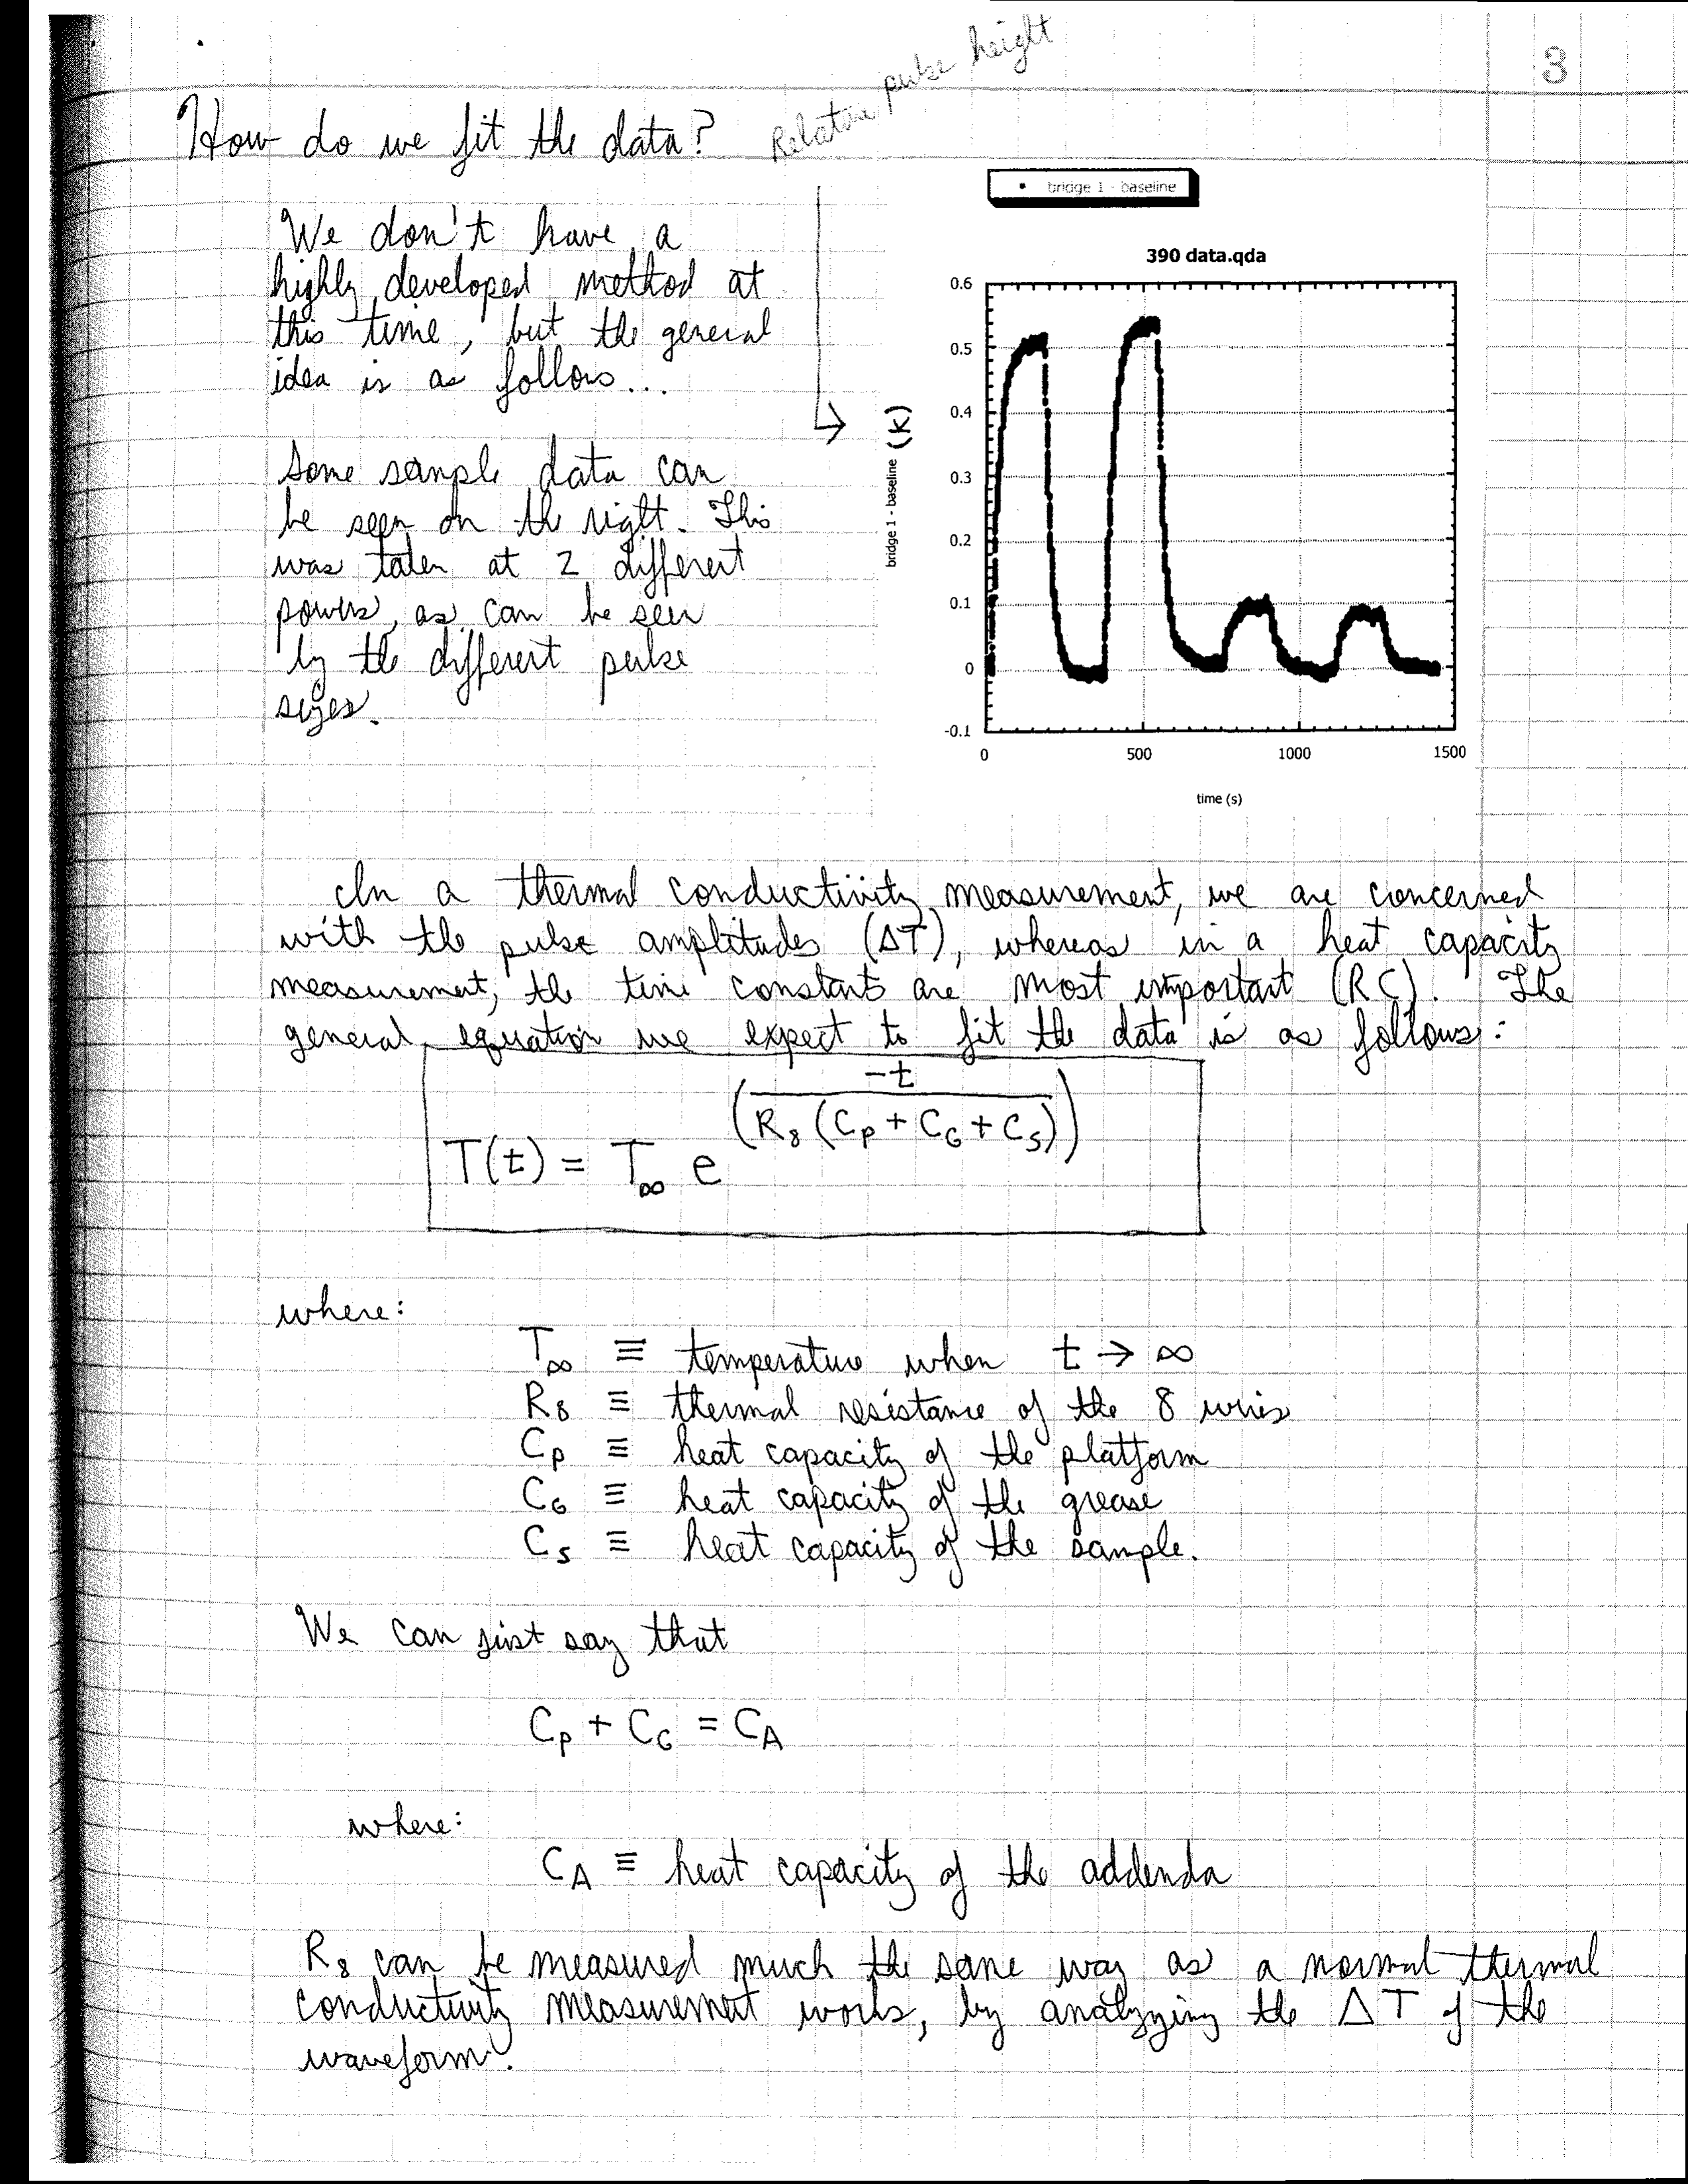 3
Relative pulse height
How do we fit the data?
We don't have a
highly developed method at
this time, but the general
idea is as follows...
Some sample data can
be seen on the right. This
was taken at 2 different
powers, as can be seen
by the different pulse
sizes.
bridge 1 - baseline
390 data.qda
0.6
0.5
0.4
0.3
0.2
0.1
0
-0.1
bridge 1 - baseline (K)
0 500 1000 1500
time (s)
In a thermal conductivity measurement, we are concerned
with the pulse amplitudes (ΔT), whereas in a heat capacity
measurement, the time constants are most important (RC). The
general equation we expect to fit the data is as follows:
T(t) = T∞ e^(-t / (R₈ (C_P + C_G + C_S)))
where:
T∞ ≡ temperature when t → ∞
R₈ ≡ thermal resistance of the 8 wires
C_P ≡ heat capacity of the platform
C_G ≡ heat capacity of the grease
C_S ≡ heat capacity of the sample.
We can just say that
C_P + C_G = C_A
where:
C_A ≡ heat capacity of the addenda
R₈ can be measured much the same way as a normal thermal
conductivity measurement works, by analyzing the ΔT of the
waveform.